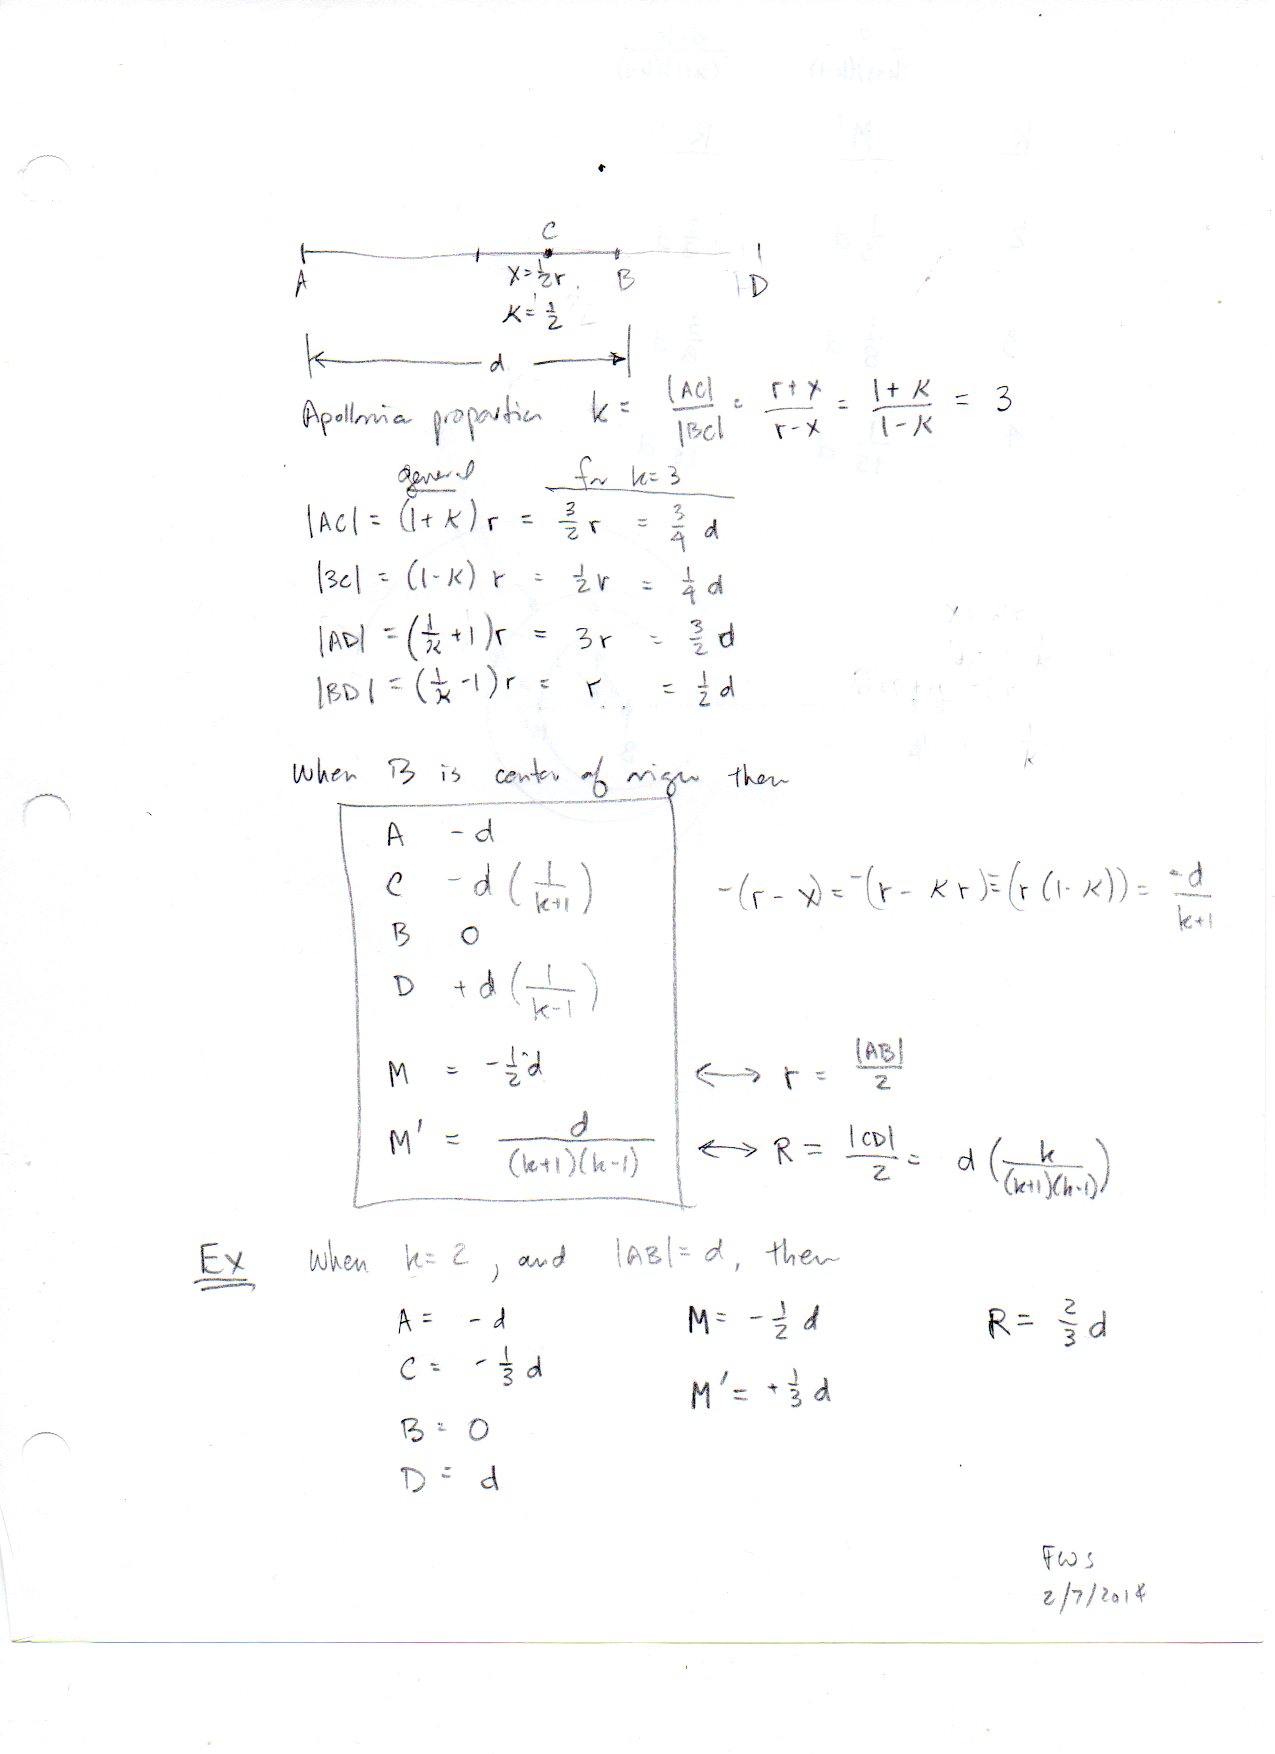 C
A x = ½r B D
κ = ½
d
Apollonian proportion k = |AC|/|BC| = (r+x)/(r-x) = (1+κ)/(1-κ) = 3
general for k=3
|AC| = (1+κ)r = 3/2 r = 3/4 d
|BC| = (1-κ)r = 1/2 r = 1/4 d
|AD| = (1/κ +1)r = 3r = 3/2 d
|BD| = (1/κ -1)r = r = 1/2 d
When B is center of origin then
A -d
C -d (1/(k+1)) -(r-x) = -(r-κr) = -(r(1-κ)) = -d/(k+1)
B 0
D +d (1/(k-1))
M = -½d ↔ r = |AB|/2
M' = d/((k+1)(k-1)) ↔ R = |CD|/2 = d (k/((k+1)(k-1)))
Ex When k=2, and |AB|=d, then
A = -d M = -½ d R = 2/3 d
C = -1/3 d M' = +1/3 d
B = 0
D = d
FWS
2/7/2018